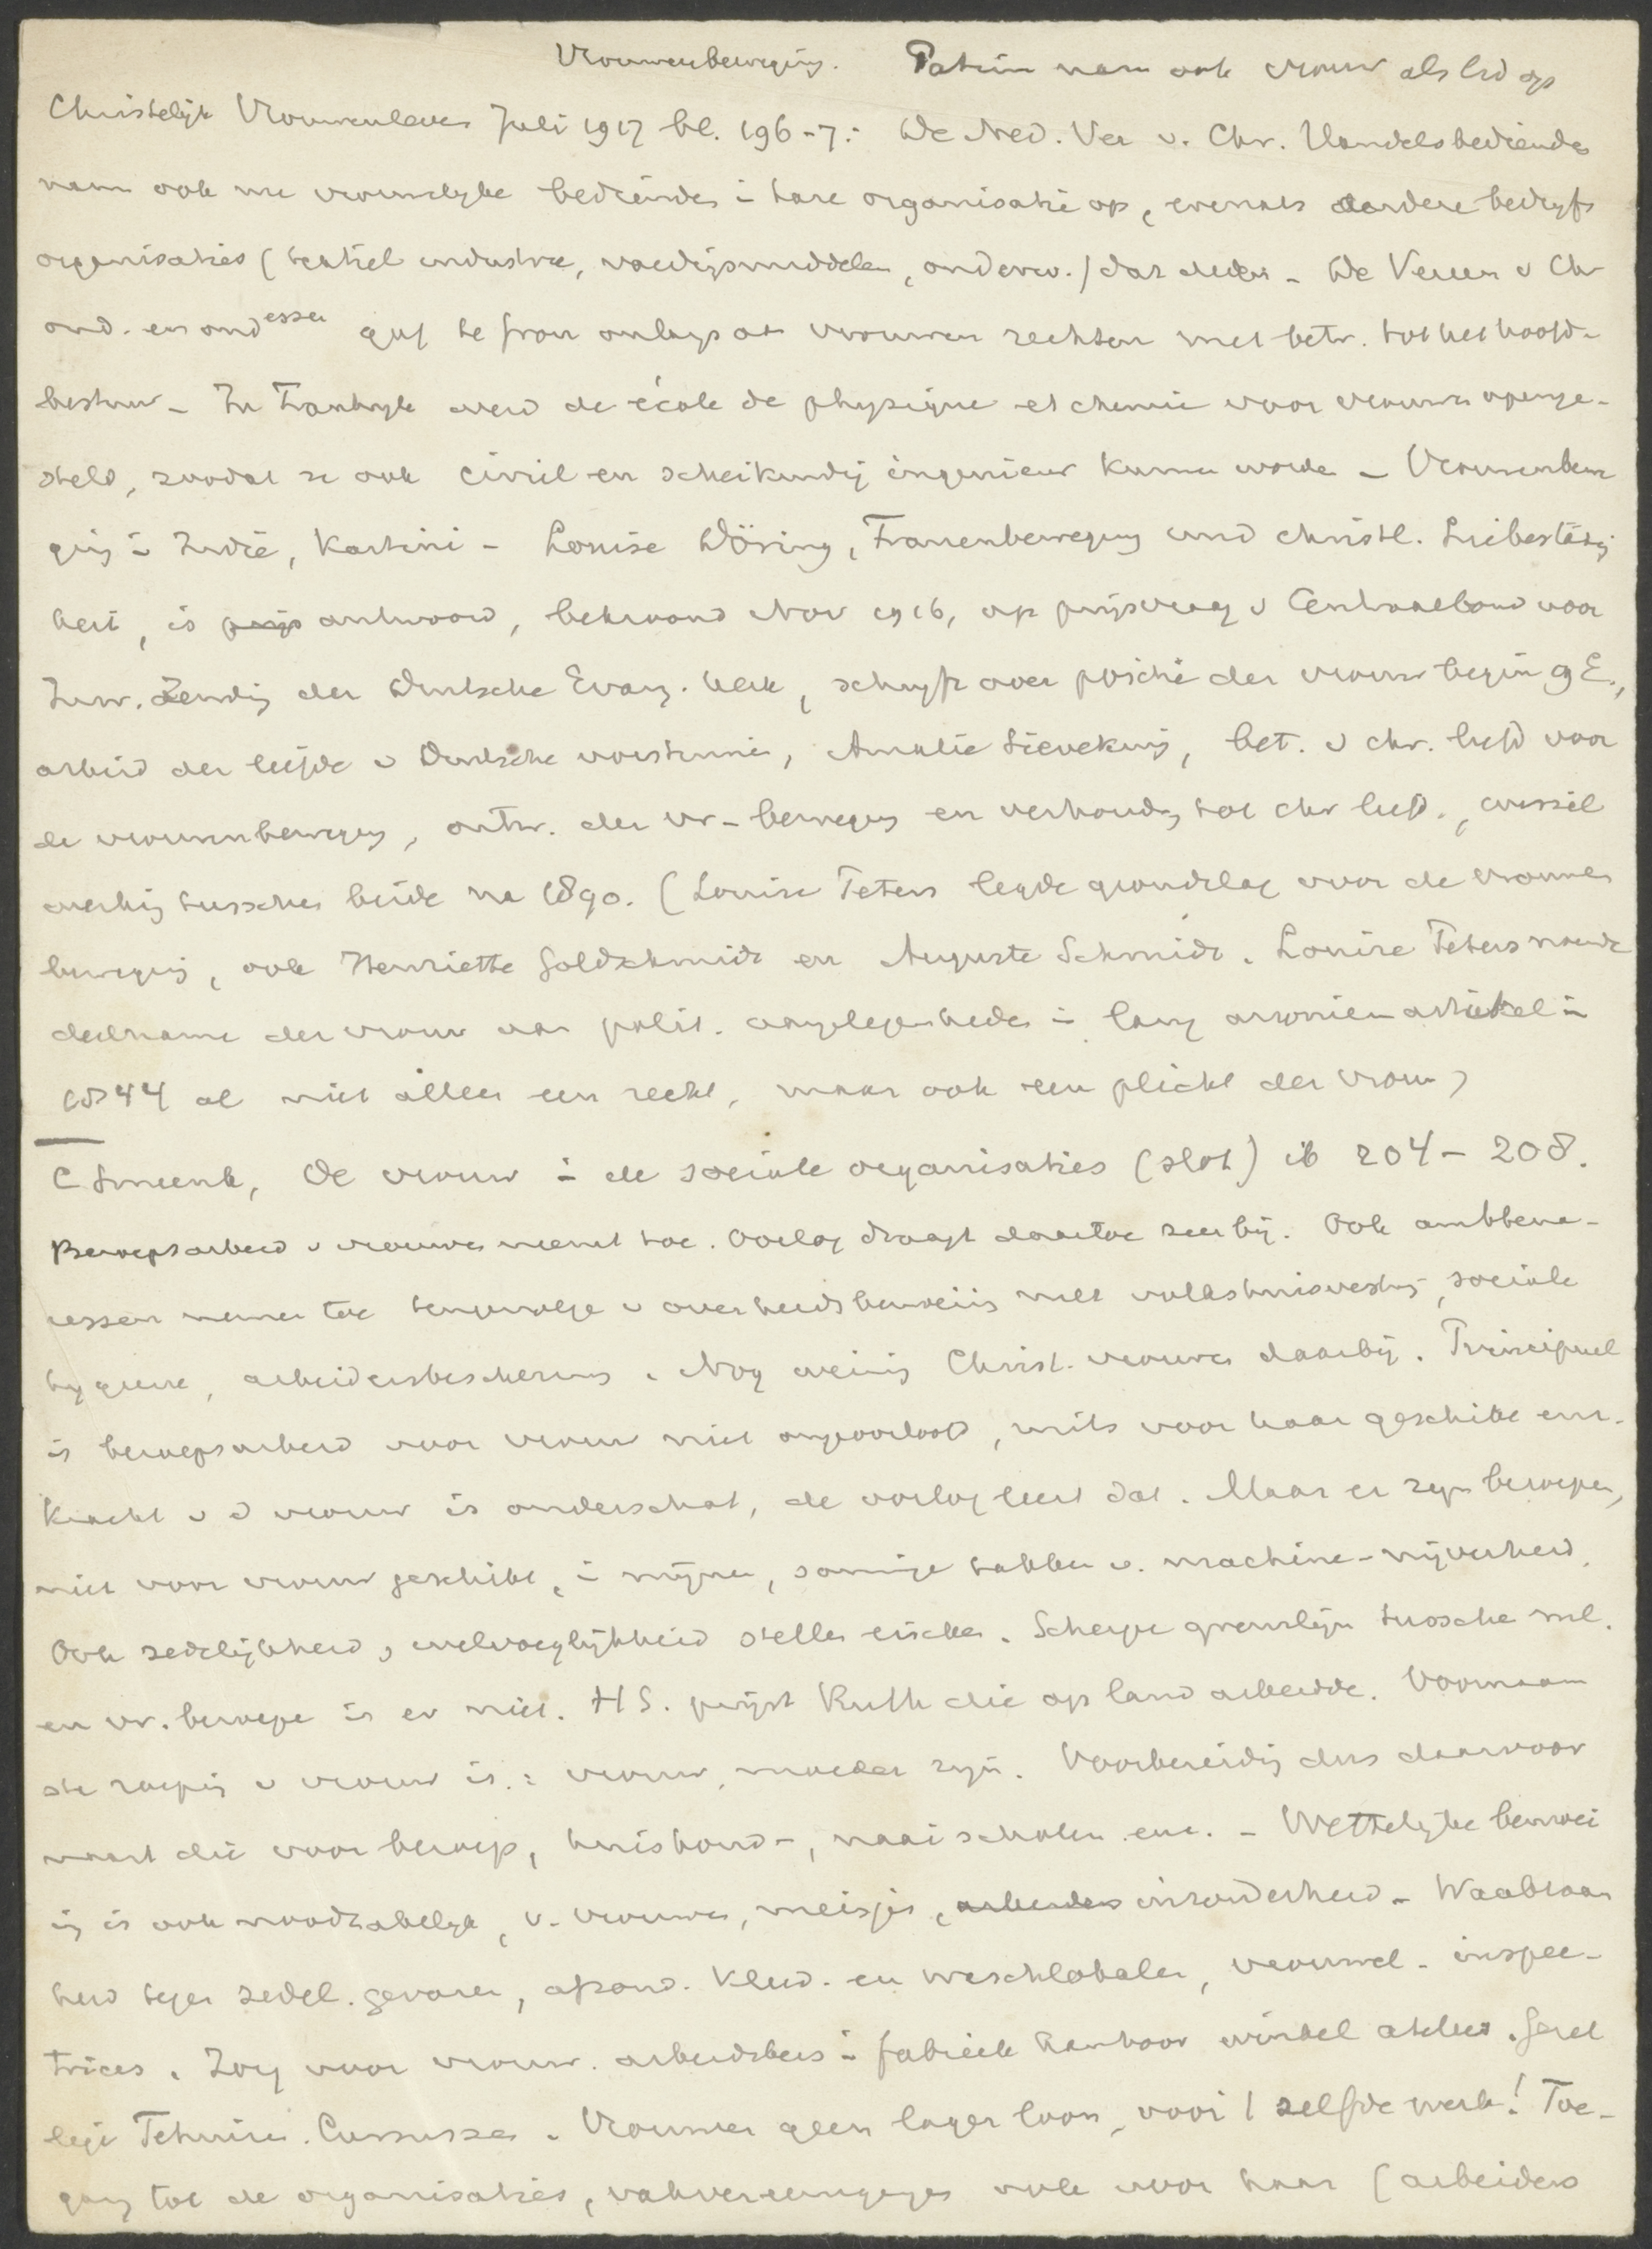 Vrouwenbeweging. Patrim nam ook vrouw als lid op
Christelijk Vrouwenleven Juli 1917 bl. 196-7: De Ned. Ver v. Chr. Handelsbedienden
nam ook nu vrouwelijke bedienden i hare organisatie op, evenals andere bedryfs
organisaties (textiel industrie, voedigsmiddelen, onderw.) dat deden - De Vereen v Chr
ond. en ond essen gaf te  onlangs aan vrouwen rechten met betr. tot het hoofd-
bestuur - In Frankryk werd de école de physique et chemie voor vrouwen openge-
steld, zoodat ze ook civiel en scheikundig ingenieur kunnen worden - Vrouwenbewe
ging i Indië, Kartini - Louise Döring, Frauenbewegung und christl. Liebestätig
keit, is antwoord, bekroond Nov 1916, op prijsvraag v Centraalbond voor
Inw. Zending der Duitsche Evang. kerk, schryft over positie der vrouw begin 19 E.,
arbeid der liefde v Duitsche vorstinnen, Amalie Sieveking, bet. v chr. liefd voor
de vrouwenbeweging, ontw. der vr-beweging en verhoudg tot chr liefd., wissel
werking tusschen beide na 1890. (Louise Peters legde grondslag voor de vrouwen
beweging, ook Henriette Goldschmidt en Auguste Schmidt. Louise Peters noemde
deelname der vrouw aan polit. aangelegenheden i lang artikel i
1844 al niet alleen een recht, maar ook een plicht der vrouw)
C Smeenk, De vrouw i de sociale organisaties (slot) ib 204-208.
Beroepsarbeid v vrouwen neemt toe. Oorlog draagt daartoe zeer bij. Ook ambtena-
ressen nemen toe tengevolge v overheidsbemoeiing met volkshuisvestig, sociale
hygiene, arbeidersbescherming. Nog weinig Christ. vrouwen daarbij. Principieel
is beroepsarbeid voor vrouw niet ongeoorloofd, mits voor haar geschikt enz.
Kracht v d vrouw is onderschat, de oorlog leert dat. Maar er zyn beroepen,
niet voor vrouw geschikt, i mijnen, sommige takken v. machine-nijverheid.
Ook zedelijkheid, welvoeglijkheid stellen eischen. Scherpe grenslijn tussche ml.
en vr. beroepe is er niet. HS. prijst Ruth die op land arbeidde. Voornaam
ste roeping v vrouw is: vrouw, moeder zyn. Voorbereidig dus daarvoor
naast die voor beroep, huishoud-, naaischolen enz. - Wettelyke bemoei
ig is ook noodzakelyk, v. vrouwen, meisjes, arbeidens inzonderheid - Waakzaam
heid tegen zedel. gevaren, afzond. kleed- en waschlokalen, vrouwel. inspec-
trices. Zorg voor vrouw. arbeidsters i fabriek kantoor winkel atelier. Gezel
lige Tehuizen. Cursussen. Vrouwen geen lager loon, voor 't zelfde werk! Toe-
gang tot de organisaties, vakvereenigingen ook voor haar (arbeiders